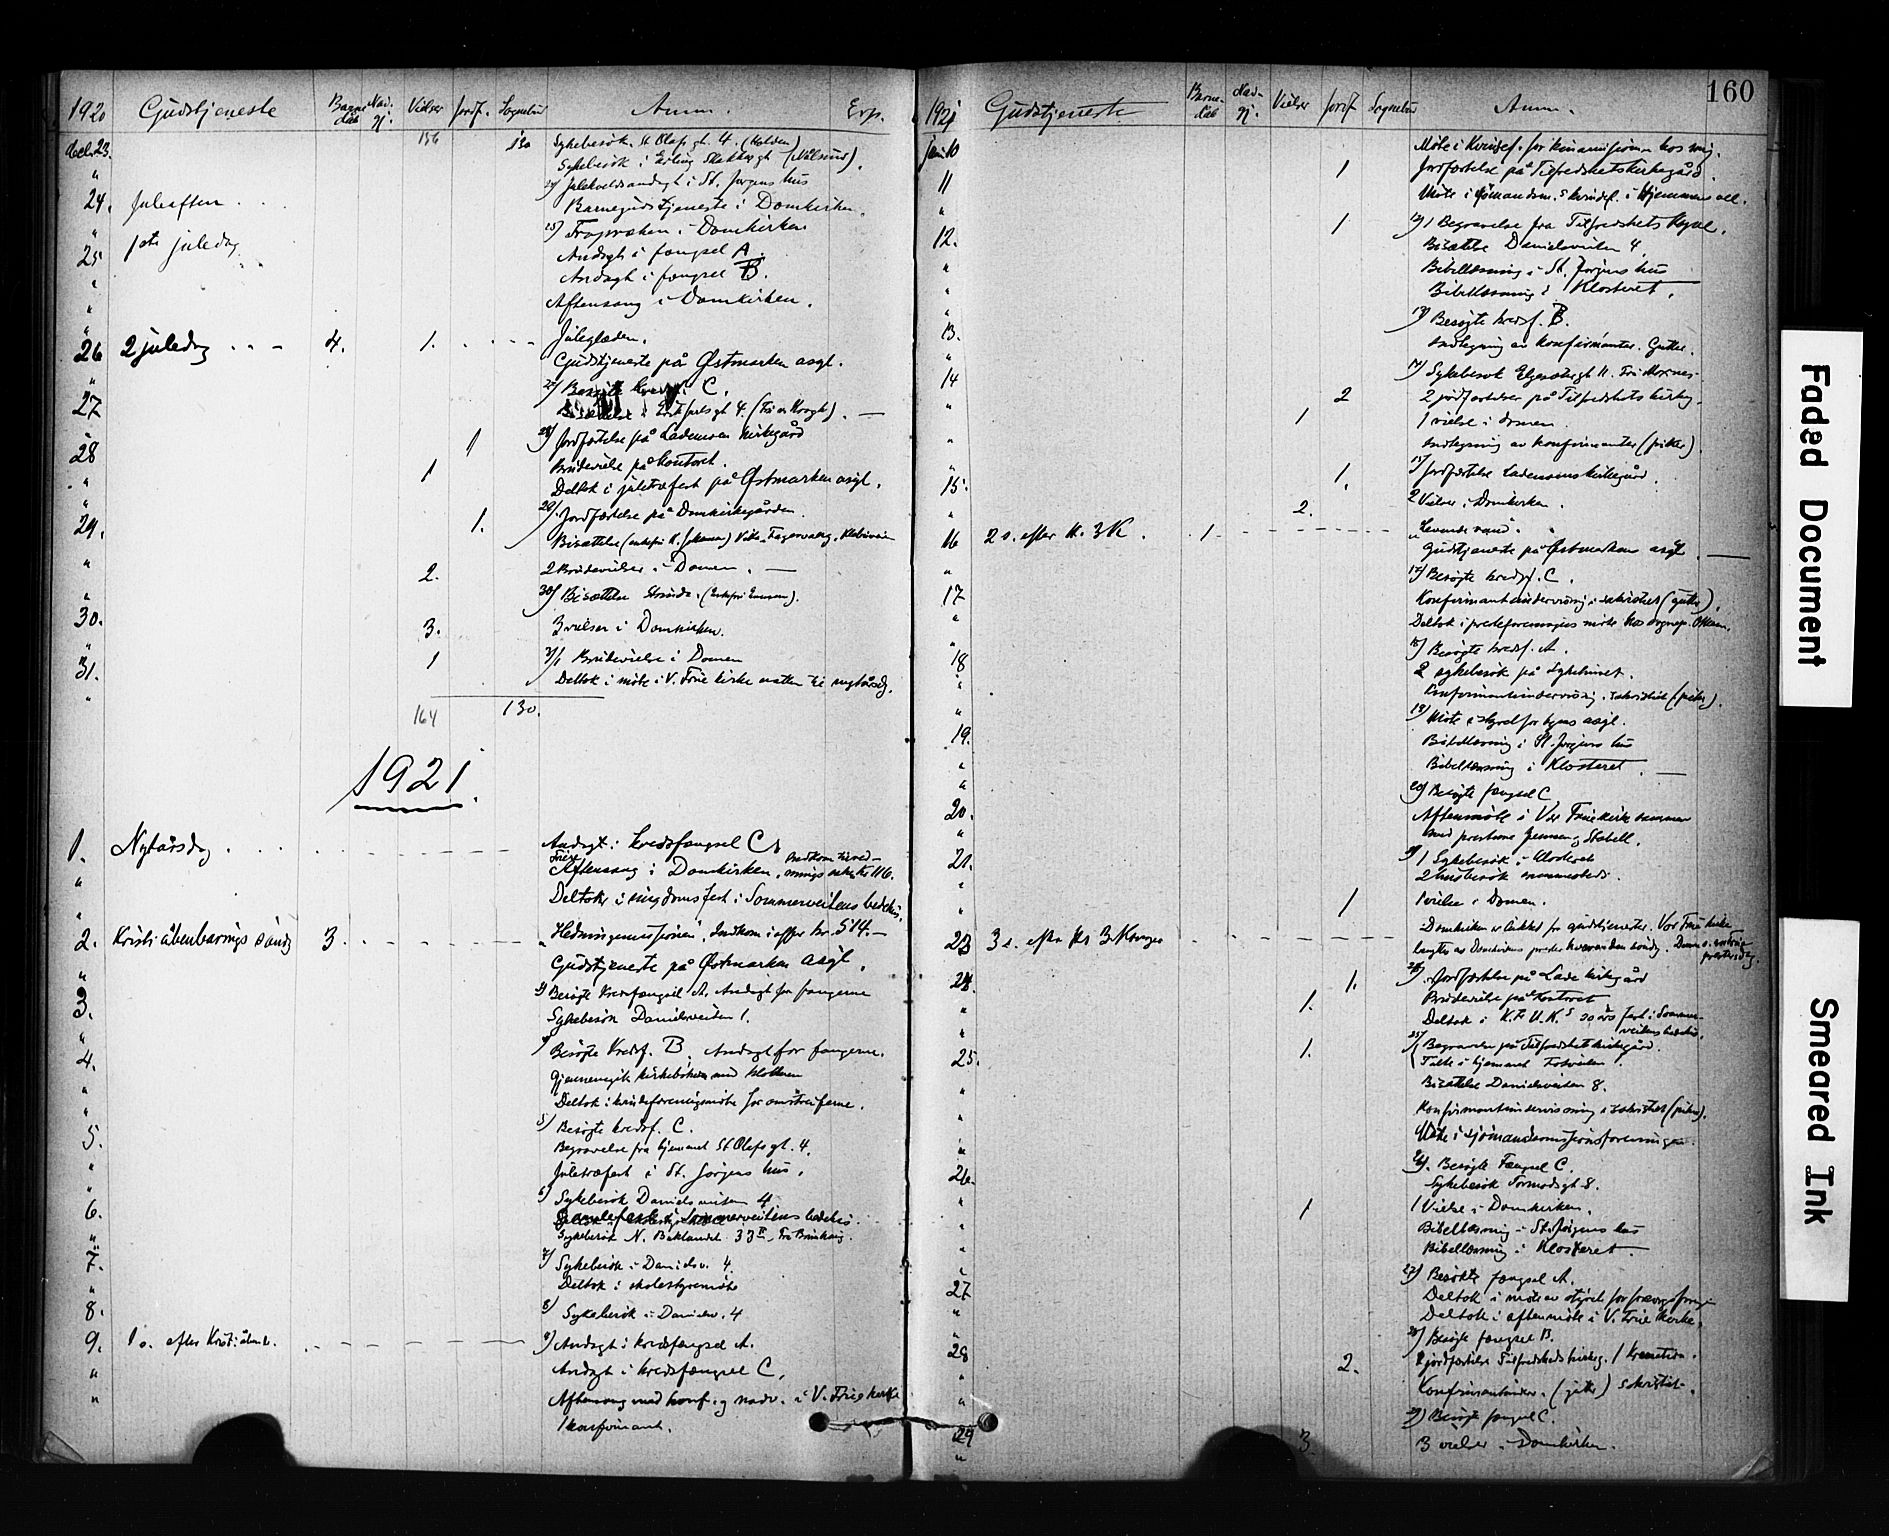 1920 Gudstjeneste Barnedåb Nadv.gj. Vielser Jordf. Sognebud Anm. Exp.
dec. 23. 156 130 Sykebesøk St Olafs gt. 4. (Holden)
" Sykebesøk i Erling Skakkes gt (Nilsund).
24. Juleaften . . . 24) Julekveldsandagt i St. Jørgens hus
" Barnegudstjeneste i Domkirken.
25 1ste juledag 25) Fropræken i Domkirken
" Andagt i fængsel A.
" Andagt i fængsel B.
" Aftensang i Domkirken.
26 2 juledag . . - 4. 1. Juleglæden.
" Gudstjeneste på Østmarken asyl.
27 27) Besøgte kredsf. C.
" i Erik Jarls gt 4. (Fru v. Krogh). —
28 1 28) Jordfæstelse på Lademoen kirkegård
" 1 Brudevielse på kontoret.
" Deltok i juletræfest på Østmarken asyl.
29. 1. 29/ Jordfæstelse på Domkirkegården.
" Bisættelse
" 2. 2 Brudevielser i Domen. —
30. 30) Bisættelse Strinda.
" 3. 3 vielser i Domkirken.
31. 1 31/1 Brudevielse i Domen
" Deltok i møte i V. Frue kirke natten til nytårsdg.
164 130.
1921.
1. Nytårsdag . . . Andagt i kredsfængsel C.
" Aftensang i Domkirken. Indkom kr. 116.
" Deltok i ungdomsfest i Sommerveitens bedehus.
2. Kristi åbenbarings sönd. 3. Hedningemissionen. Indkom i offer kr. 514.—
" Gudstjeneste på Østmarken asyl.
3. 3) Besøgte Kredsfængsel A. Andagt for fangerne
" Sykebesøk Danielsveiten 1.
4. 4) Besøgte Kredsf. B. Andagt for fangerne.
" Gjennemgik kirkebøkerne med klokkeren
" Deltok i kvindeforeningsmøte for omstreiferne.
5. 5) Besøgte kredsf. C.
" Begravelse fra hjemmet St Olafs gt. 4.
" Juletræfest i St. Jørgens hus.
6. 6) Sykebesøk Danielsveiten 4
" Sommerveitens bedehus.
" Sykebesøk N. Baklandet 33 II
7. 7) Sykebesøk i Danielsv. 4.
" Deltok i skolestyremøte
8. 8) Sykebesøk i Danielsv. 4
9. 1 s. efter Kristi åbenb. 9) Andagt i kredsfængsel A.
" Andagt i kredsfængsel C.
" Aftensang med konf. og nadv. i V. Frue kirke
1 konfirmant.
160
1921 Gudstjeneste Barnedåb Nadv.gj. Vielser Jordf Sognebud Anm.
jan. 10 Møte i Kvindef. for kinamisjonen hos mig.
11 1 Jordfæstelse på Tilfredshets kirkegård.
" Møte i sjømandsm.s kvindef. i Hjemmenes vel.
12. 1 12) 1 Begravelse fra Tilfredshets Kapel.
" Bisættelse Danielsveiten 4.
" Bibellæsning i St. Jørgens hus
" Bibellæsning i Klosteret.
13. 13) Besøgte kredsf. B.
Indtegning av konfirmanter. Gutter.
14 14) Sykebesøk Elgesætergt 11.
" 2 2 jordfæstelser på Tilfredshets kirkeg.
" 1 1 vielse i domen.
" Indtegning av konfirmanter (piker)
15. 1. 15) Jordfæstelse Lademoens kirkegård.
" 2. 2 Vielser i Domkirken.
16 2 s. efter H. 3 K. 1. Levende vand
" Gudstjeneste på Østmarken asyl. —
17 17) Besøgte kredsf. C.
" Konfirmantundervisning i sakristiet (gutter).
" Deltok i presteforeningens møte hos sognepr.
18 18) Besøgte kredsf. A.
" 2 sykebesøk på Sykehuset.
" Konfirmantundervisning i sakristiet (piker).
19. 19) Møte i styret for byens asyl.
" Bibellæsning i St. Jørgens hus
" Bibellæsning i Klosteret. —
20. 20) Besøgte fængsel C
" Aftenmøte i Vor Frue kirke sammen
med presterne Jensen og Stabell.
21. 21) 1 Sykebesøk i Klosteret
" 2 husbesøk sammesteds.
" 1 1 vielse i Domen.
23 3 s. efter H. 3 Konger Domkirken er lukket for gudstjenester. Vor Frue kirke
benyttes av Domkirkens prester hver anden söndg.
24. 1. 24) Jordfæstelse på Lade kirkegård
" 1. Brudevielse på Kontoret
" Deltok i K.F.U.K.s års fest i Sommerveitens bedehus.
25. 1. 25) Begravelse på Tilfredshets kirkegård.
Talte i hjemmet
" Bisættelse Danielsveiten 8.
" Konfirmantundervisning i sakristiet (piker).
" Møte i sjømandsmisjonsforeningen.
26. 26). Besøgte Fængsel C.
" Sykebesøk Tormodsgt 8.
" 1 1 Vielse i Domkirken.
" Bibellæsning i St. Jørgens hus
" Bibellæsning i Klosteret —
27 27) Besøkte fængsel A.
" Deltok i møte av styret for
" Deltok i aftenmøte i V. Frue Kirke.
28 28) Besøgte fængsel B.
" 2. 2 jordfæstelser Tilfredsheds kirkeg. 1 Kremation.
" Konfirmantunder. (gutter) sakristiet.
29 29) Besøgte fængsel C.
" 3 3 vielser i Domkirken.
Faded Document
Smeared Ink